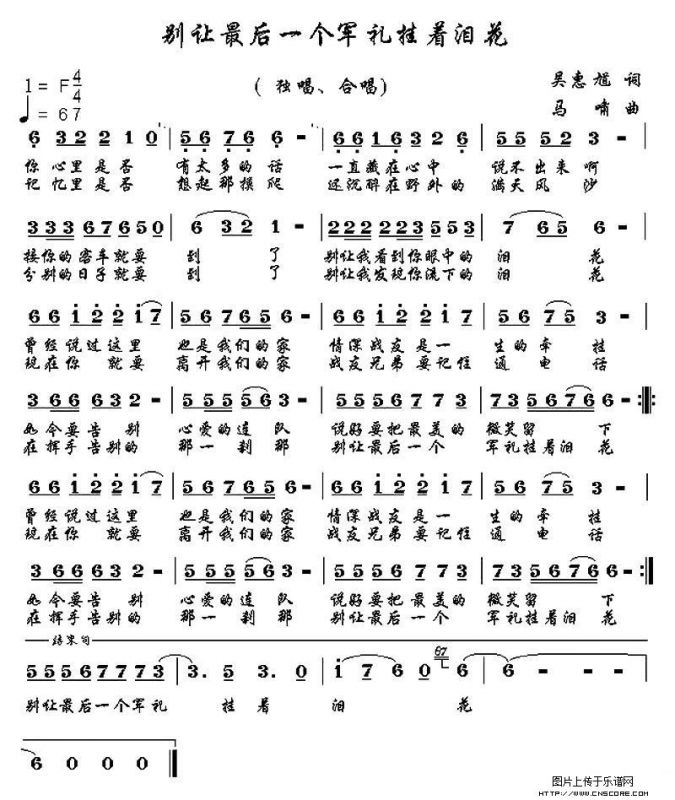 别让最后一个军礼挂着泪花
1 = F 4/4
♩ = 67
( 独唱、合唱)
吴惠馗 词
马 啸 曲
6 3 2 2 1 0 | 5 6 7 6 6 - | 6 6 1 6 3 2 2 - | 5 5 5 2 3 - |
你心里是否 有太多的话 一直藏在心中 说不出来啊
记忆里是否 想起那摸爬 还沉醉在野外的 满天风沙
3 3 3 6 7 6 5 0 | 6 3 2 1 - | 2 2 2 2 2 2 3 5 5 3 | 7 6 5 6 - |
接你的客车就要 到 了 别让我看到你眼中的 泪 花
分别的日子就要 到 了 别让我发现你流下的 泪 花
6 6 i 2 2 i 7 | 5 6 7 6 5 6 - | 6 6 i 2 2 i 7 | 5 6 7 5 3 - |
曾经说过这里 也是我们的家 情深战友是一 生的牵挂
现在你 就要 离开我们的家 战友兄弟要记住 通 电 话
3 6 6 6 3 2 - | 5 5 5 5 5 6 3 - | 5 5 5 6 7 7 3 | 7 3 5 6 7 6 6 - :||:
如今要告别 心爱的连队 说好要把最美的 微笑留 下
在挥手告别的 那一刹那 别让最后一个 军礼挂着泪花
6 6 i 2 2 i 7 | 5 6 7 6 5 6 - | 6 6 i 2 2 i 7 | 5 6 7 5 3 - |
曾经说过这里 也是我们的家 情深战友是一 生的牵挂
现在你 就要 离开我们的家 战友兄弟要记住 通 电 话
3 6 6 6 3 2 - | 5 5 5 5 5 6 3 - | 5 5 5 6 7 7 3 | 7 3 5 6 7 6 6 - :||
如今要告别 心爱的连队 说好要把最美的 微笑留 下
在挥手告别的 那一刹那 别让最后一个 军礼挂着泪花
结束句
5 5 5 6 7 7 7 3 | 3. 5 3. 0 | i 7 6 0 | 67 6 - - - |
别让最后一个军礼 挂 着 泪 花
6 0 0 0 ||
图片上传于乐谱网
HTTP://WWW.CNSCORE.COM/